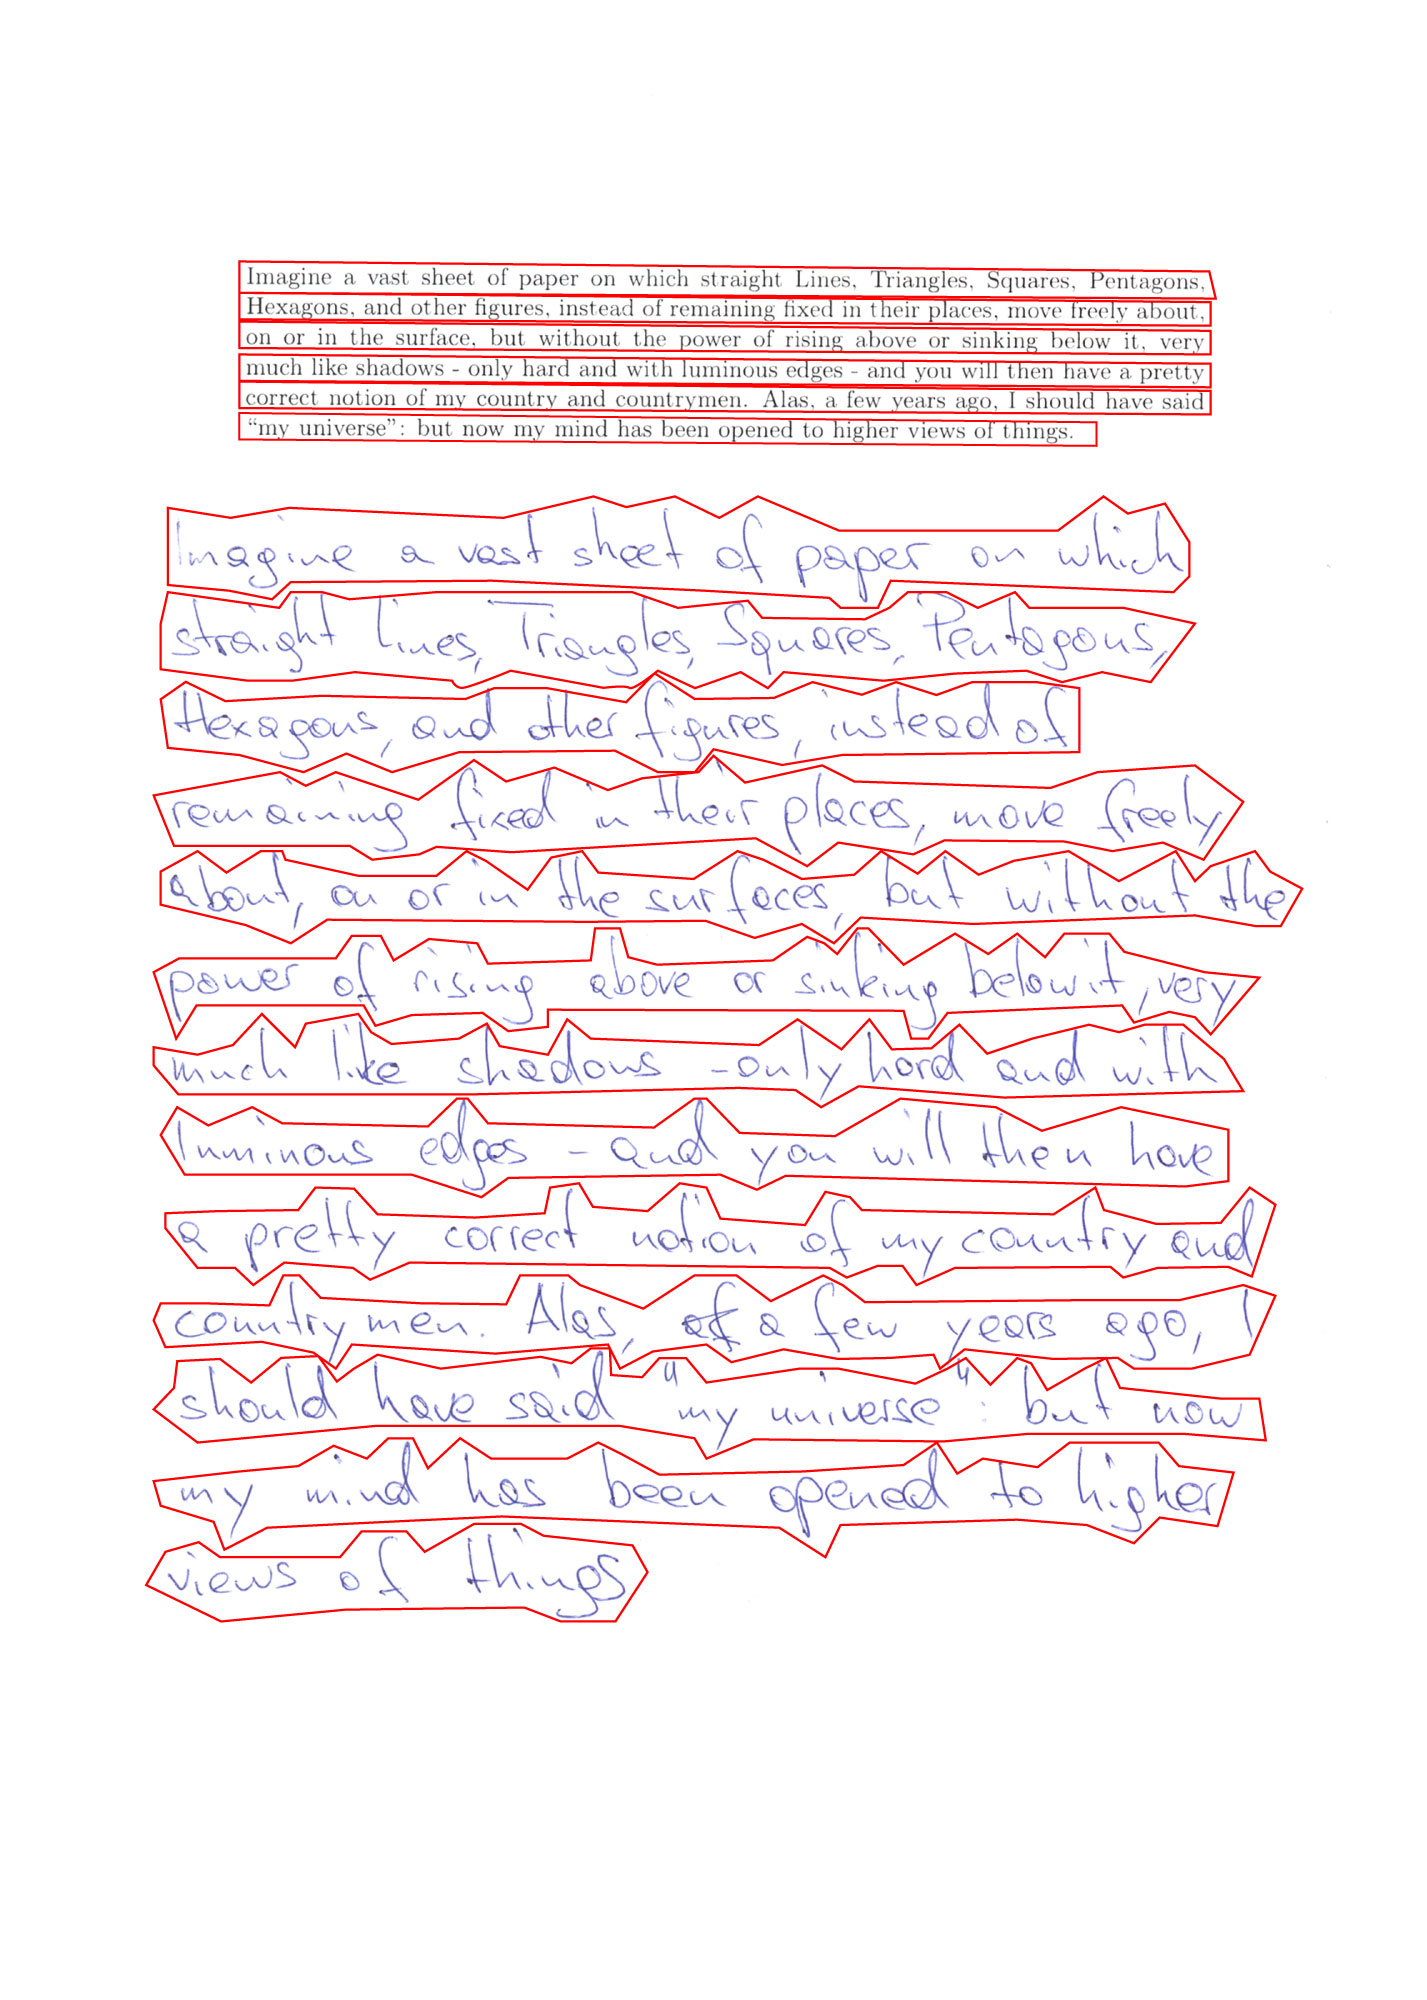 Imagine a vast sheet of paper on which straight Lines, Triangles, Squares, Pentagons,
Hexagons, and other figures, instead of remaining fixed in their places, move freely about,
on or in the surface, but without the power of rising above or sinking below it, very
much like shadows - only hard and with luminous edges - and you will then have a pretty
correct notion of my country and countrymen. Alas, a few years ago, I should have said
“my universe”: but now my mind has been opened to higher views of things.
Imagine a vast sheet of paper on which
straight Lines, Triangles, Squares, Pentagons,
Hexagons, and other figures, instead of
remaining fixed in their places, move freely
about, on or in the surfaces, but without the
power of rising above or sinking below it, very
much like shadows - only hard and with
luminous edges - and you will then have
a pretty correct notion of my country and
countrymen. Alas, a few years ago, I
should have said "my universe": but now
my mind has been opened to higher
views of things